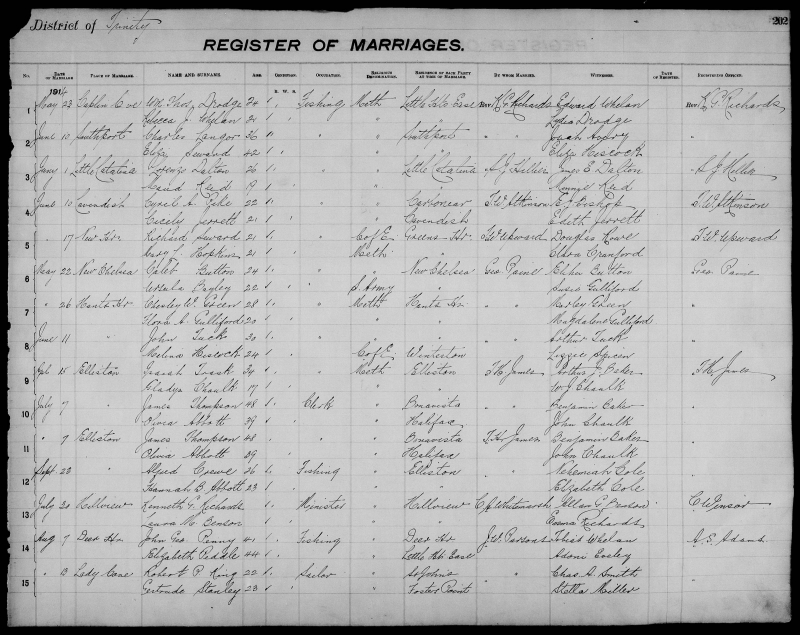 District of Trinity
202
REGISTER OF MARRIAGES.
No. DATE OF MARRIAGE PLACE OF MARRIAGE. NAME AND SURNAME. AGE. CONDITION. OCCUPATION. RELIGIOUS DENOMINATION. RESIDENCE OF EACH PARTY AT TIME OF MARRIAGE. BY WHOM MARRIED. WITNESSES. DATE OF REGISTER. REGISTERING OFFICER.
191
B. W. S.
1 May 23 Cove Wm Thos Drodge 24 1 Fishing Meth Little Hb East Rev K. G. Richards Edward Whelan Rev K. G. Richards
Rebecca J Whelan 21 1 " Lydia Drodge
2 June 10 Southport Charles Langor 36 " " Southport " Avery "
Eliza Seward 42 1 " Eliza Hiscock
3 Jany 1 Little Catalina Dalton 26 " " Little Catalina A J Hillier James E Dalton A J Hillier
Maud Reid 19 " Minnie Reid
4 June 10 Cavendish Cyril A Pike 22 " " Carbonear S. W. Atkinson E J Bishop S. W. Atkinson
Cicely Jerrett 21 1 " Cavendish Edith Jerrett
5 " 17 New Hr. Richard Seward 21 " C of E Greens Hr. Upward Douglas Rowe Upward
Mary Hopkins 21 Meth " Clara Cranford
6 May 22 New Chelsea Caleb Button 24 " " New Chelsea Geo. Paine Button Geo. Paine
Payley 22 S. Army " Susie Gulliford
7 " 26 Hants Hr Chesley W. Green 28 " Meth Hants Hr " Green "
Flora A. Gulliford 20 " " Magdalene Gulliford
8 June 11 " John Tuck 30 " " " " Arthur Tuck "
Melina Hiscock 24 C of E Winterton Lizzie Green
9 Feb 15 Elliston Isaiah Trask 34 " Meth Elliston T H James Arthur J. Baker T H James
Gladys Chaulk 17 " " W J Chaulk
10 July 7 " James Thompson 48 Clerk " Bonavista " Benjamin Baker "
Olivia Abbott 39 " Halifax John Chaulk
11 " 7 Elliston James Thompson 48 " " Bonavista T. H. James Benjamin Baker "
Olivia Abbott 39 " Halifax John Chaulk
12 Sept. 22 " Alfred Crewe 26 Fishing " Elliston " Nehemiah Cole "
Hannah B. Abbott 23 " " Elizabeth Cole
13 July 20 Hillview Kenneth G. Richards Minister " Hillview C. J. Whitemarsh Allan G. Benson C. Winsor
Laura M. Benson " " Emma Richards
14 Aug 7 Deer Hr John Geo Penny 41 Fishing " Deer Hr J. W. Parsons Whelan A. S. Adams
Elizabeth Peddle 44 " Little Hb East
15 " 13 Lady Cove Robert P. King 22 Sailor " St Johns " Chas. A. Smith "
Gertrude Stanley 23 " Foster Point Stella Miller